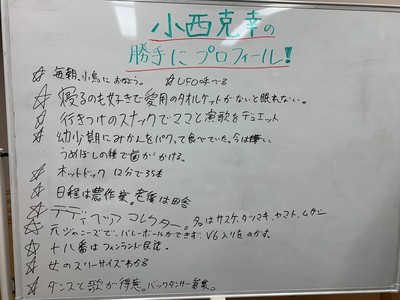 小西克幸の
勝手にプロフィール!
☆ 毎朝、小鳥におはよう。 ☆UFO呼べる
☆ 寝るのも好きで愛用のタオルケットがないと眠れない。
☆ 行きつけのスナックでママと演歌をデュエット
☆ 幼少期にみかんをパクって食べていた。今は嫌い
うめぼしの種で歯がかける。
☆ ホットドック 12分で35本
☆ 日程は農作業。老後は田舎
☆ テディベアコレクター。名はサスケ、タツマキ、ヤマト、ムサシ
☆ 元ジャニーズで、バレーボールができず、V6入りをのがす。
☆ 十八番はフィンランド民謡。
☆ 女のスリーサイズわかる
☆ ダンスと歌が得意。バックダンサー募集。